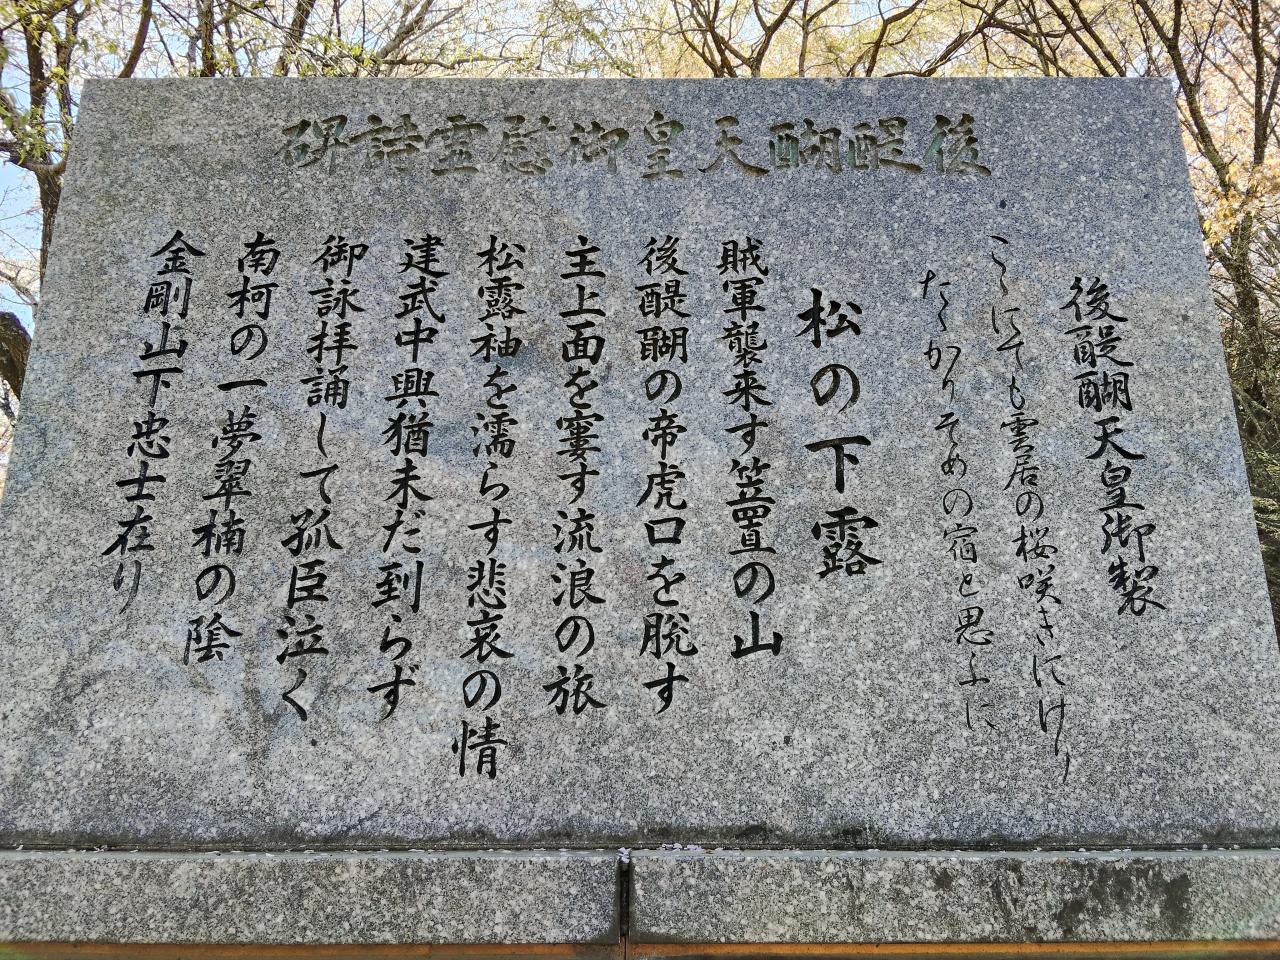 後醍醐天皇御慰霊詩碑
後醍醐天皇御製
こゝにても雲居の桜咲きにけり
たゞかりそめの宿と思ふに
松の下露
賊軍襲来す笠置の山
後醍醐の帝虎口を脱す
主上面を窶す流浪の旅
松露袖を濡らす悲哀の情
建武中興猶未だ到らず
御詠拝誦して孤臣泣く
南柯の一夢翠楠の陰
金剛山下忠士在り